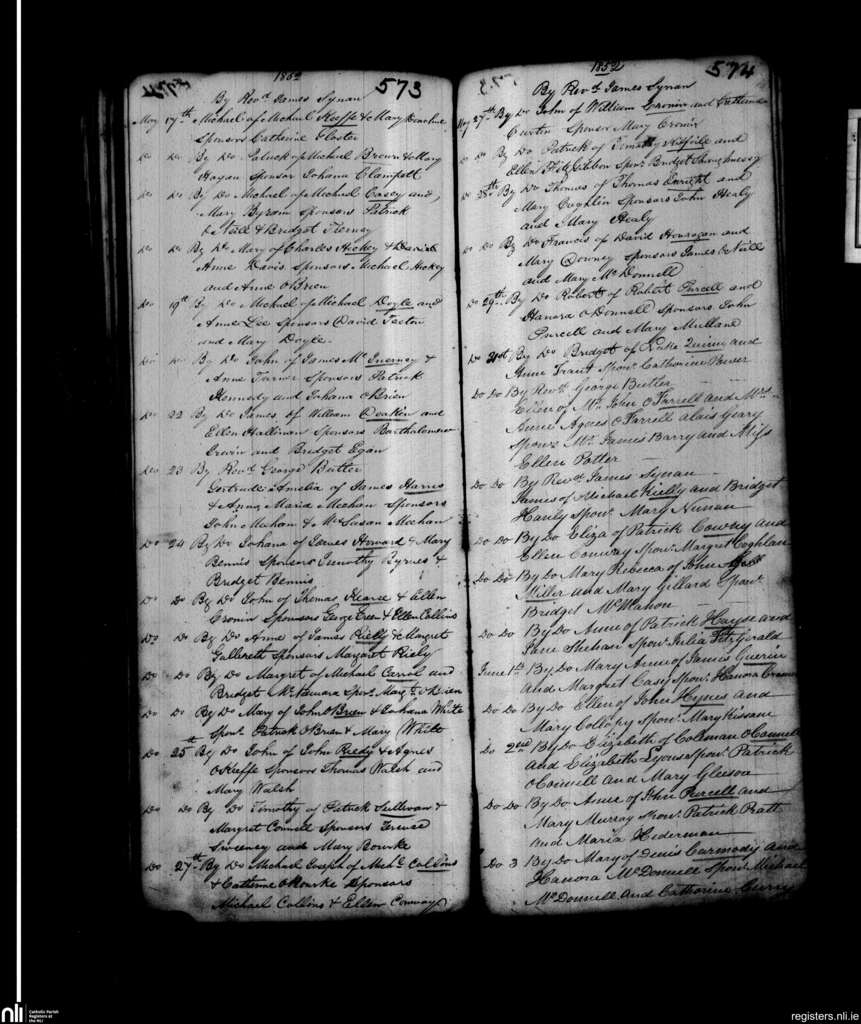 1852
573
By Revd James Synan
May 17th Michael of Michael Keeffe & Mary Donohue
Sponsors Catherine Gloster
Do Do By Do Patrick of Michael Brown & Mary
Hogan Sponsor Johana Clampett
Do Do By Do Michael of Michael Casey and
Mary Byrom Sponsors Patrick
O Neill & Bridget Tierney
Do Do By Do Mary of Charles Hickey &
Anne Davis Sponsors Michael Hickey
and Anne O'Brien
Do 19th By Do Michael of Michael Doyle and
Anne Lee Sponsors David
and Mary Doyle
Do Do By Do John of James McInerney &
Anne Turner Sponsors Patrick
Kennedy and Johana O'Brien
Do 22 By Do James of William Deakin and
Ellen Hallinan Sponsors Bartholomew
Cronin and Bridget Egan
Do 23 By Revd George Butler
Gertrude Amelia of James Harris
& Anna Maria Meehan Sponsors
John Meehan & Mrs Susan Meehan
Do 24 By Do Johana of James Howard & Mary
Bennis Sponsors Timothy Byrnes &
Bridget Bennis
Do Do By Do John of Thomas Hearn & Ellen
Cronin Sponsors George & Ellen Collins
Do Do By Do Anne of James Riely & Margret
Sponsors Margaret Riely
Do Do By Do Margret of Michael Carrol and
Bridget McNamara Sponr Margt O'Brien
Do Do By Do Mary of John O'Brien & Johana White
Sponr Patrick O'Brien & Mary White
Do 25th By Do John of John Reedy & Agnes
O'Keeffe Sponsors Thomas Walsh and
Mary Walsh
Do Do By Do Timothy of Patrick Sullivan &
Margret Connell Sponsors Terence
Sweeney and Mary Bourke
Do 27th By Do Michael Joseph of Michl Collins
& Catherine O'Rourke Sponsors
Michael Collins & Ellen Conway
1852
574
By Revd James Synan
May 27th By Do John of William Cronin and Catherine
Curtin Sponsor Mary Cronin
Do Do By Do Patrick of Timothy and
Ellen Fitzgibbon Sponr Bridget Shaughnessy
Do 28th By Do Thomas of Thomas Enright and
Mary Coghlin Sponsors John Healy
and Mary Healy
Do Do By Do Francis of David Hourigan and
Mary Downey Sponsors James O Neill
and Mary McDonnell
Do 29th By Do Robert of Robert Purcell and
Hanora O Donnell Sponsors John
Purcell and Mary Mullane
Do 31st By Do Bridget of Quinn and
Anne Grant Sponr Catherine Power
Do Do By Revd George Butler
Ellen of Mr John O Farrell and Mrs
Anne Agnes O Farrell alais Geary
Sponrs Mr James Barry and Miss
Ellen Potter
Do Do By Revd James Synan
James of Michael Kielly and Bridget
Hanly Sponr Mary Nunan
Do Do By Do Eliza of Patrick Cowny and
Ellen Conway Sponr Margret Coghlan
Do Do By Do Mary Rebecca of John
Miller and Mary Gillard Sponr
Bridget McMahon
Do Do By Do Anne of Patrick Hayse and
Jane Shehan Sponr Julia Fitzgerald
June 1st By Do Mary Anne of James Guerin
and Margret Casy Sponr Hanora Cronin
Do Do By Do Ellen of John Hynes and
Mary Collopy Sponr Mary Kissane
Do 2nd By Do Elizabeth of Colman O Connell
and Elizabeth Lyons Sponr Patrick
O Connell and Mary Gleeson
Do Do By Do Anne of John Purcell and
Mary Murray Sponr Patrick Pratt
and Maria Hederman
Do 3 By Do Mary of Denis Carmody and
Hanora McDonnell Sponr Michael
McDonnell and Catherine Curry
nli
Catholic Parish
Registers at
the NLI
registers.nli.ie